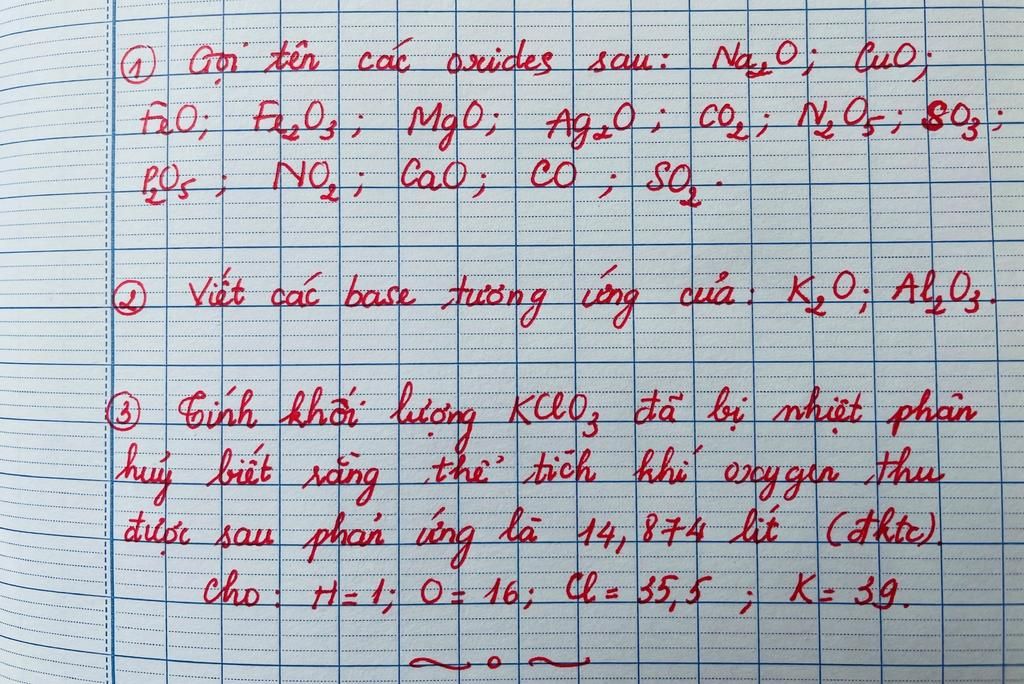 ① Gọi tên các oxides sau: Na₂O; CuO;
FeO; Fe₂O₃; MgO; Ag₂O; CO₂; N₂O₅; SO₃;
P₂O₅; NO₂; CaO; CO; SO₂.
② Viết các base tương ứng của: K₂O; Al₂O₃.
③ Tính khối lượng KClO₃ đã bị nhiệt phân
huỷ biết rằng thể tích khí oxygen thu
được sau phản ứng là 14,874 lít (đktc).
Cho: H=1; O=16; Cl=35,5; K=39.